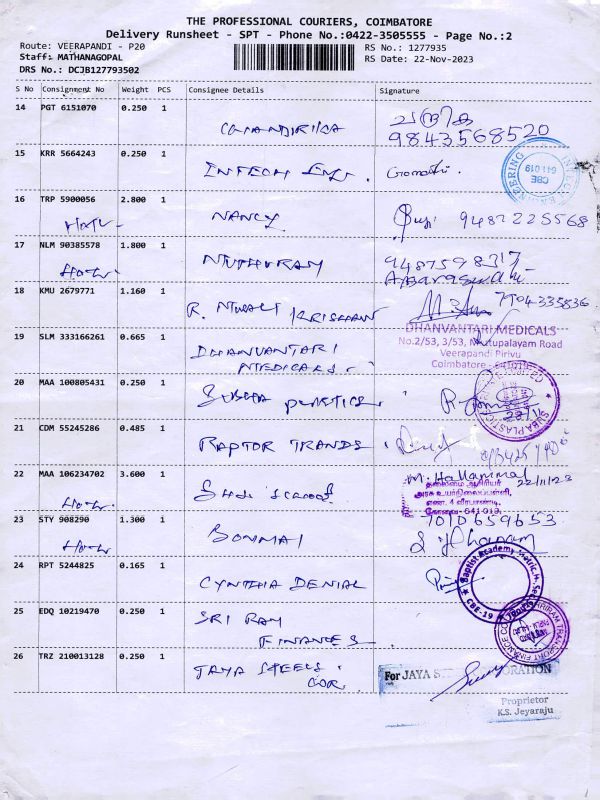 THE PROFESSIONAL COURIERS, COIMBATORE
Delivery Runsheet - SPT - Phone No.:0422-3505555 - Page No.:2
Route: VEERAPANDI - P20
RS No.: 1277935
Staff: MATHANAGOPAL
RS Date: 22-Nov-2023
DRS No.: DCJB127793502
S No Consignment No Weight PCS Consignee Details Signature
14 PGT 6151070 0.250 1
CHANDIRIKA
சந்திரிகா
9843568520
15 KRR 5664243 0.250 1
INTECH Engr. Gomathi.
INTECH ENGINEERING CBE 641 019
16 TRP 5900056 2.800 1
NANCY
9487225568
17 NLM 90385578 1.800 1
MUTHURAM
9487598317
18 KMU 2679771 1.160 1
R. MURALI KRISHNAN
7904335836
19 SLM 333166261 0.665 1
DHANVANTARI
MEDICALS.
DHANVANTARI MEDICALS
No.2/53, 3/53, Mutupalayam Road
Veerapandi Pirivu
Coimbatore - 641019
20 MAA 100805431 0.250 1
SUBHA PLASTICS
SUBA PLASTICS
22/11
21 CDM 55245286 0.485 1
RAPTOR TRANDS
22 MAA 106234702 3.600 1
22/11/23
தலைமை ஆசிரியர்
அரசு உயர்நிலைப்பள்ளி,
எண். 4 வீரபாண்டி,
கோவை - 641 019.
23 STY 908290 1.300 1
BOMMAI
7010659653
S. J Dhanam
24 RPT 5244825 0.165 1
CYNTHIA DENIAL
Baptist Academy Matric.H. Sec.
CBE-19
25 EDQ 10219470 0.250 1
SRI RAM
FINANCES
26 TRZ 210013128 0.250 1
JAYA STEELS
COR.
For JAYA STEEL CORPORATION
Proprietor
K.S. Jeyaraju